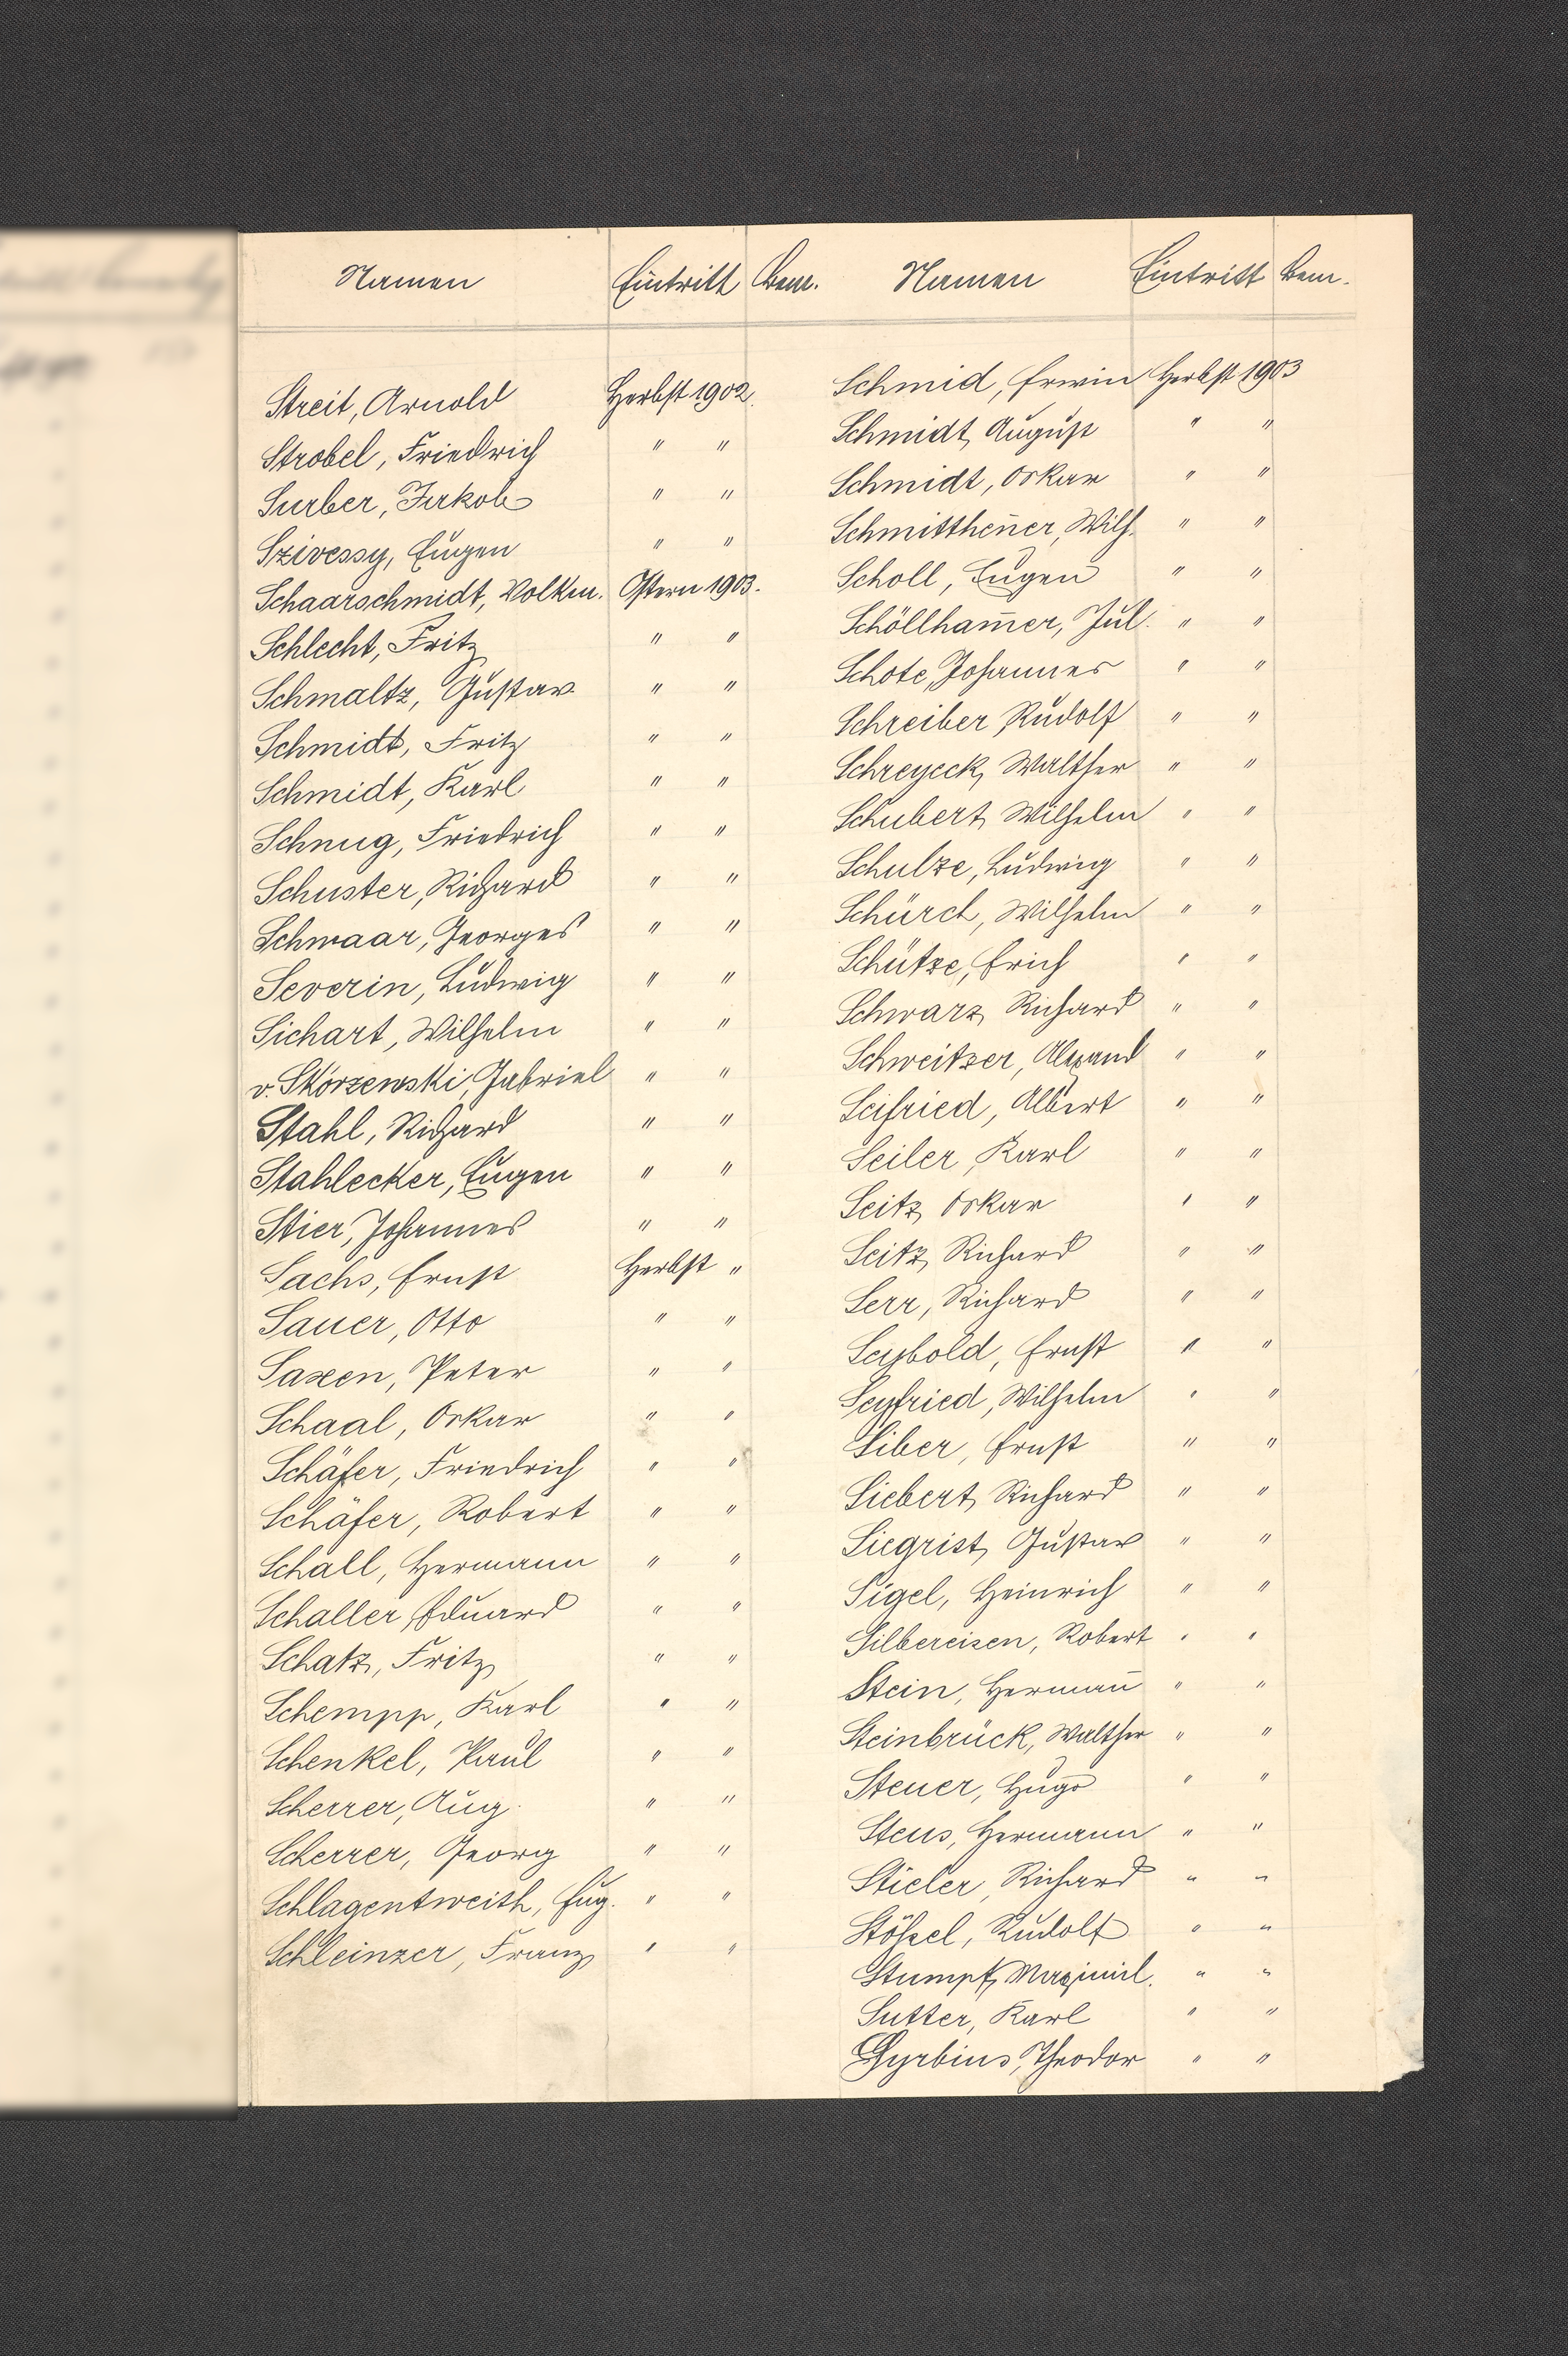 Namen Eintritt Bem.
Streit, Arnold Herbst 1902.
Strobel, Friedrich " "
Surber, Jakob " "
Szivessy, Eugen " "
Schaarschmidt, Volkm. Ostern 1903.
Schlecht, Fritz " "
Schmaltz, Gustav " "
Schmidt, Fritz " "
Schmidt, Karl " "
Schnug, Friedrich " "
Schuster, Richard " "
Schwaar, Georges " "
Severin, Ludwig " "
Sichart, Wilhelm " "
v. Skórzewski, Gabriel " "
Stahl, Richard " "
Stahlecker, Eugen " "
Stier, Johannes " "
Sachs, Ernst Herbst "
Sauer, Otto " "
Saxen, Peter " "
Schaal, Oskar " "
Schäfer, Friedrich " "
Schäfer, Robert " "
Schall, Hermann " "
Schaller, Eduard " "
Schatz, Fritz " "
Schempp, Karl " "
Schenkel, Paul " "
Scherrer, Aug. " "
Scherrer, Georg " "
Schlagentweith, Eug. " "
Schleinzer, Franz " "
Namen Eintritt Bem.
Schmid, Erwin Herbst 1903
Schmidt, August " "
Schmidt, Oskar " "
Schmitthen̄er, Wilh. " "
Scholl, Eugen " "
Schöllham̄er, Jul. " "
Schote, Johannes " "
Schreiber, Rudolf " "
Schreyeck, Walther " "
Schubert, Wilhelm " "
Schulze, Ludwig " "
Schürch, Wilhelm " "
Schütze, Erich " "
Schwarz, Richard " "
Schweitzer, Alexand " "
Seifried, Albert " "
Seiler, Karl " "
Seitz, Oskar " "
Seitz, Richard " "
Serr, Richard " "
Seybold, Ernst " "
Seyfried, Wilhelm " "
Siber, Ernst " "
Siebert, Richard " "
Siegrist, Gustav " "
Sigel, Heinrich " "
Silbereisen, Robert " "
Stein, Herman̄ " "
Steinbrück, Walther " "
Steuer, Hugo " "
Steus, Hermann " "
Stieler, Richard " "
Rudolf " "
Stumpf, Maximil. " "
Sutter, Karl " "
Syrbius, Theodor " "